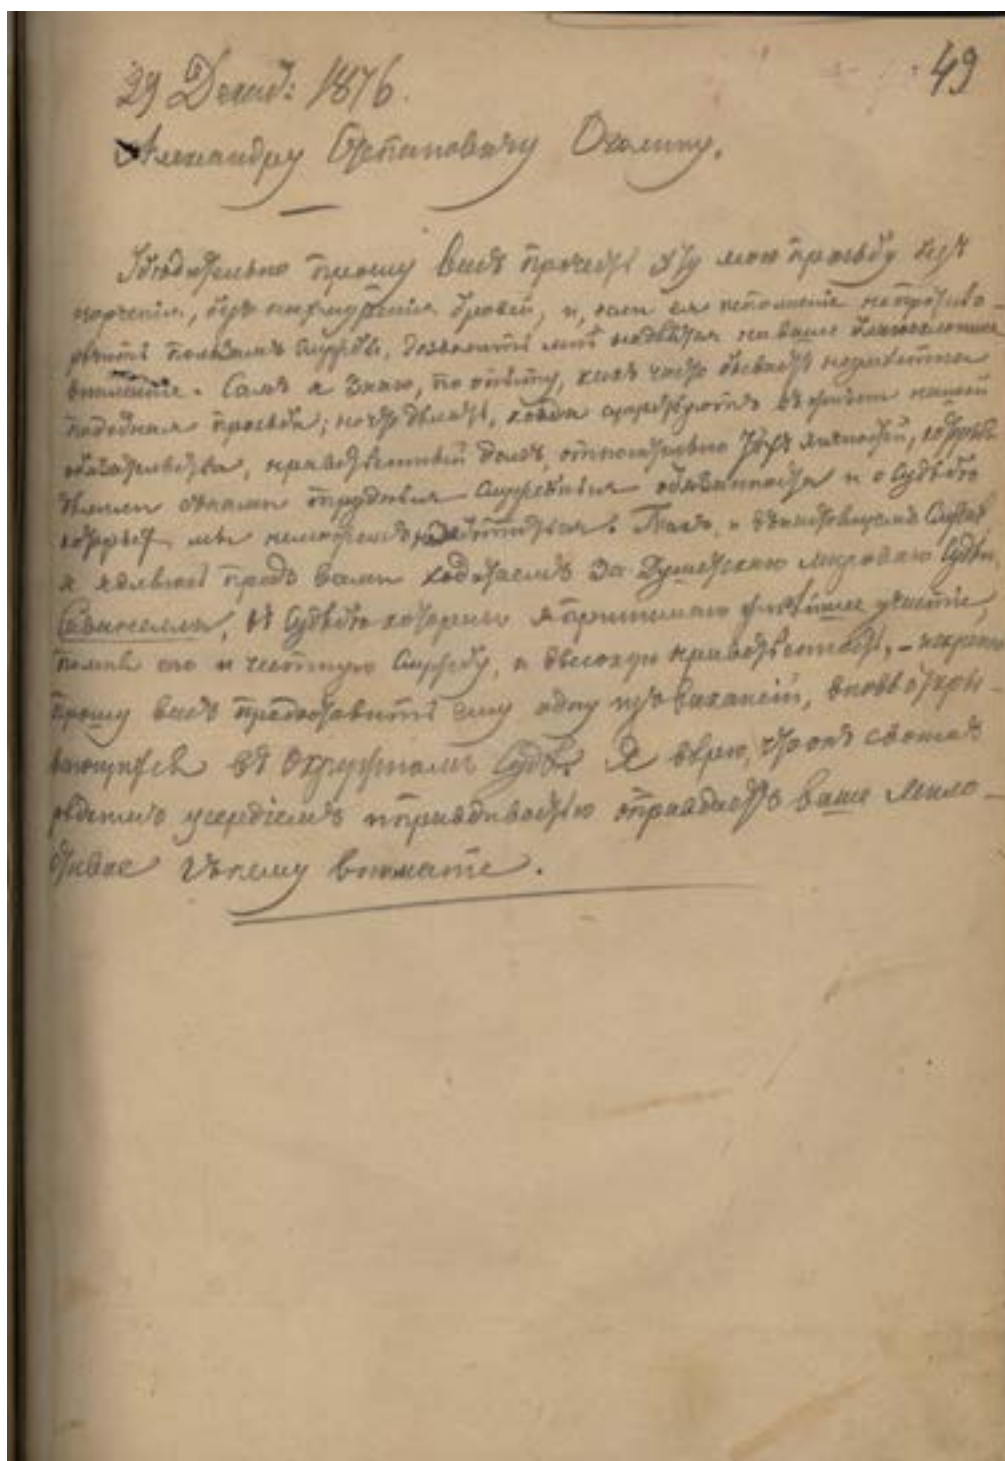 49
29 Декаб: 1876.
Александру Степановичу Очкину.
Убедительно прошу васъ прочесть эту мою просьбу безъ
порченія, безъ нахмуренія бровей, и, если ея исполненіе непротиво-
речитъ пользамъ службы, дозволить мнѣ надѣяться на ваше благосклонное
вниманіе. Самъ я знаю, по опыту, какъ часто бываетъ
подобная просьба; но что дѣлать, когда существуютъ въ жизни нашей
обязательства, нравственный долгъ, относительно тѣхъ личностей, которые
дѣлили съ нами трудныя служебныя обязанности и о судьбѣ
которыхъ мы неможемъ . Такъ, и въ настоящемъ случаѣ
я являюсь предъ вами ходатаемъ за Душетскаго мироваго судью
, въ судьбѣ котораго я принимаю участіе,
помня его и честную службу, и высокую нравственность, – искренно
прошу васъ предоставить ему одну изъ вакансій, вновь откры-
вающихся въ Окружномъ Судѣ. Я вѣрю, что онъ своимъ
усердіемъ и правдивостью оправдаетъ ваше мило-
стивое къ нему вниманіе.